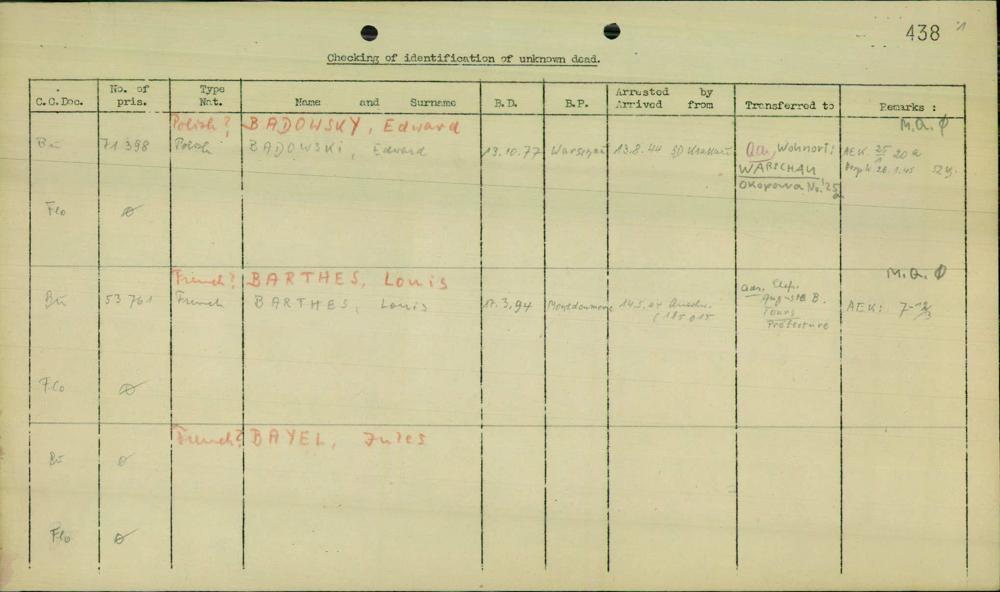 438
Checking of identification of unknown dead.
C.C.Doc. No. of pris. Type Nat. Name and Surname B.D. B.P. Arrested by Arrived from Transferred to Remarks :
Polish? BADOWSKY, Edward M.Q. Ø
Bu 71 398 Polish BADOWSKI, Edward 13.10.77 Warschau 13.8.44 SD Krakau Adr. Wohnort: AEK 25/1 20
WARSCHAU 28.1.45
Okopowa No. 25
Flo Ø
French? BARTHES, Louis M.Q. Ø
Bu 53761 French BARTHES, Louis 17.3.94 14.5.44 Adr. AEK: 7
Auguste B.
Tours
Préfecture
Flo Ø
French? BAYEL, Jules
Bu Ø
Flo Ø